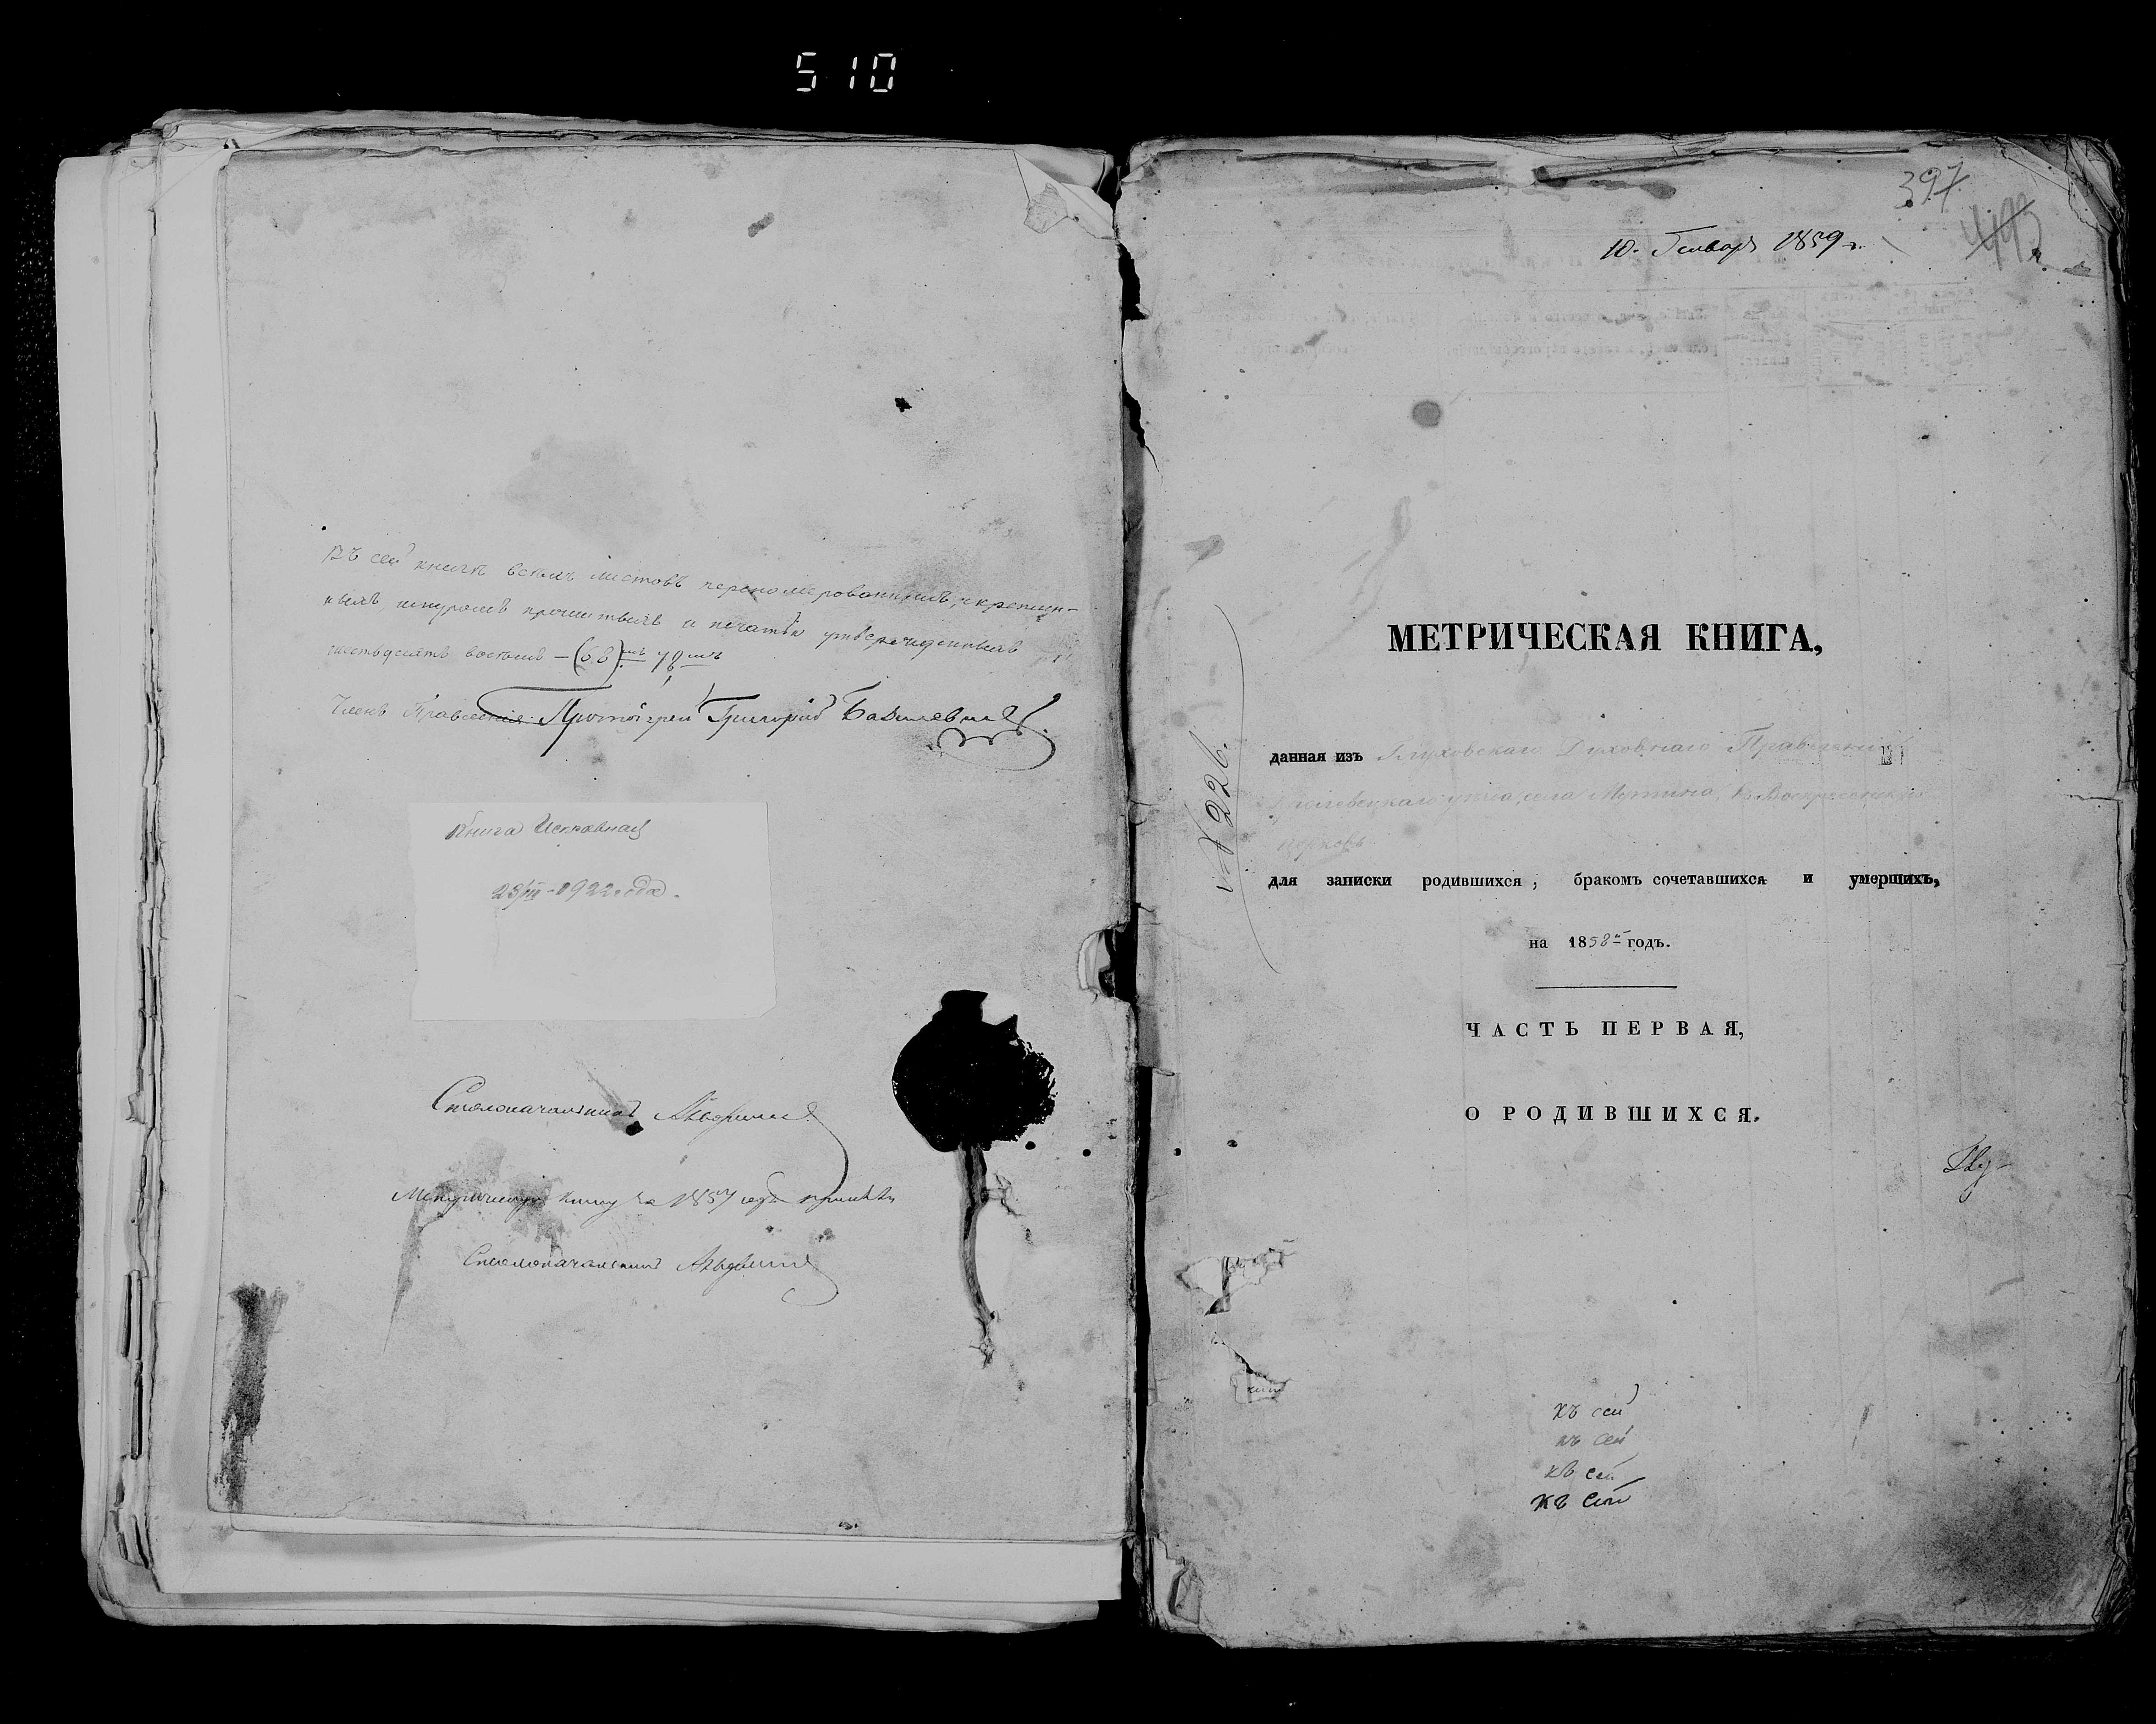 510
Въ сей книгѣ всѣхъ листовъ перенумерованныхъ, скреплен-
ныхъ, шнуромъ прошитыхъ и печатью утвержденныхъ
шестьдесятъ восемь – (68)
Членъ Правленія Протоіерей Григорій Базилевичъ
Книга Исправная
23/III - 1922 года.
Столоначальникъ
Метрическую книгу за 1857 годъ
Столоначальникъ
397
493
10. Генваря 1859 г.
№ 226.
МЕТРИЧЕСКАЯ КНИГА,
данная изъ Глуховскаго Духовнаго Правленія
уѣзда, села Мутина, въ Воскресенскую
церковь
для записки родившихся, бракомъ сочетавшихся и умершихъ,
на 1858й годъ.
ЧАСТЬ ПЕРВАЯ,
О РОДИВШИХСЯ.
къ сей
къ сей
къ сей
къ сей